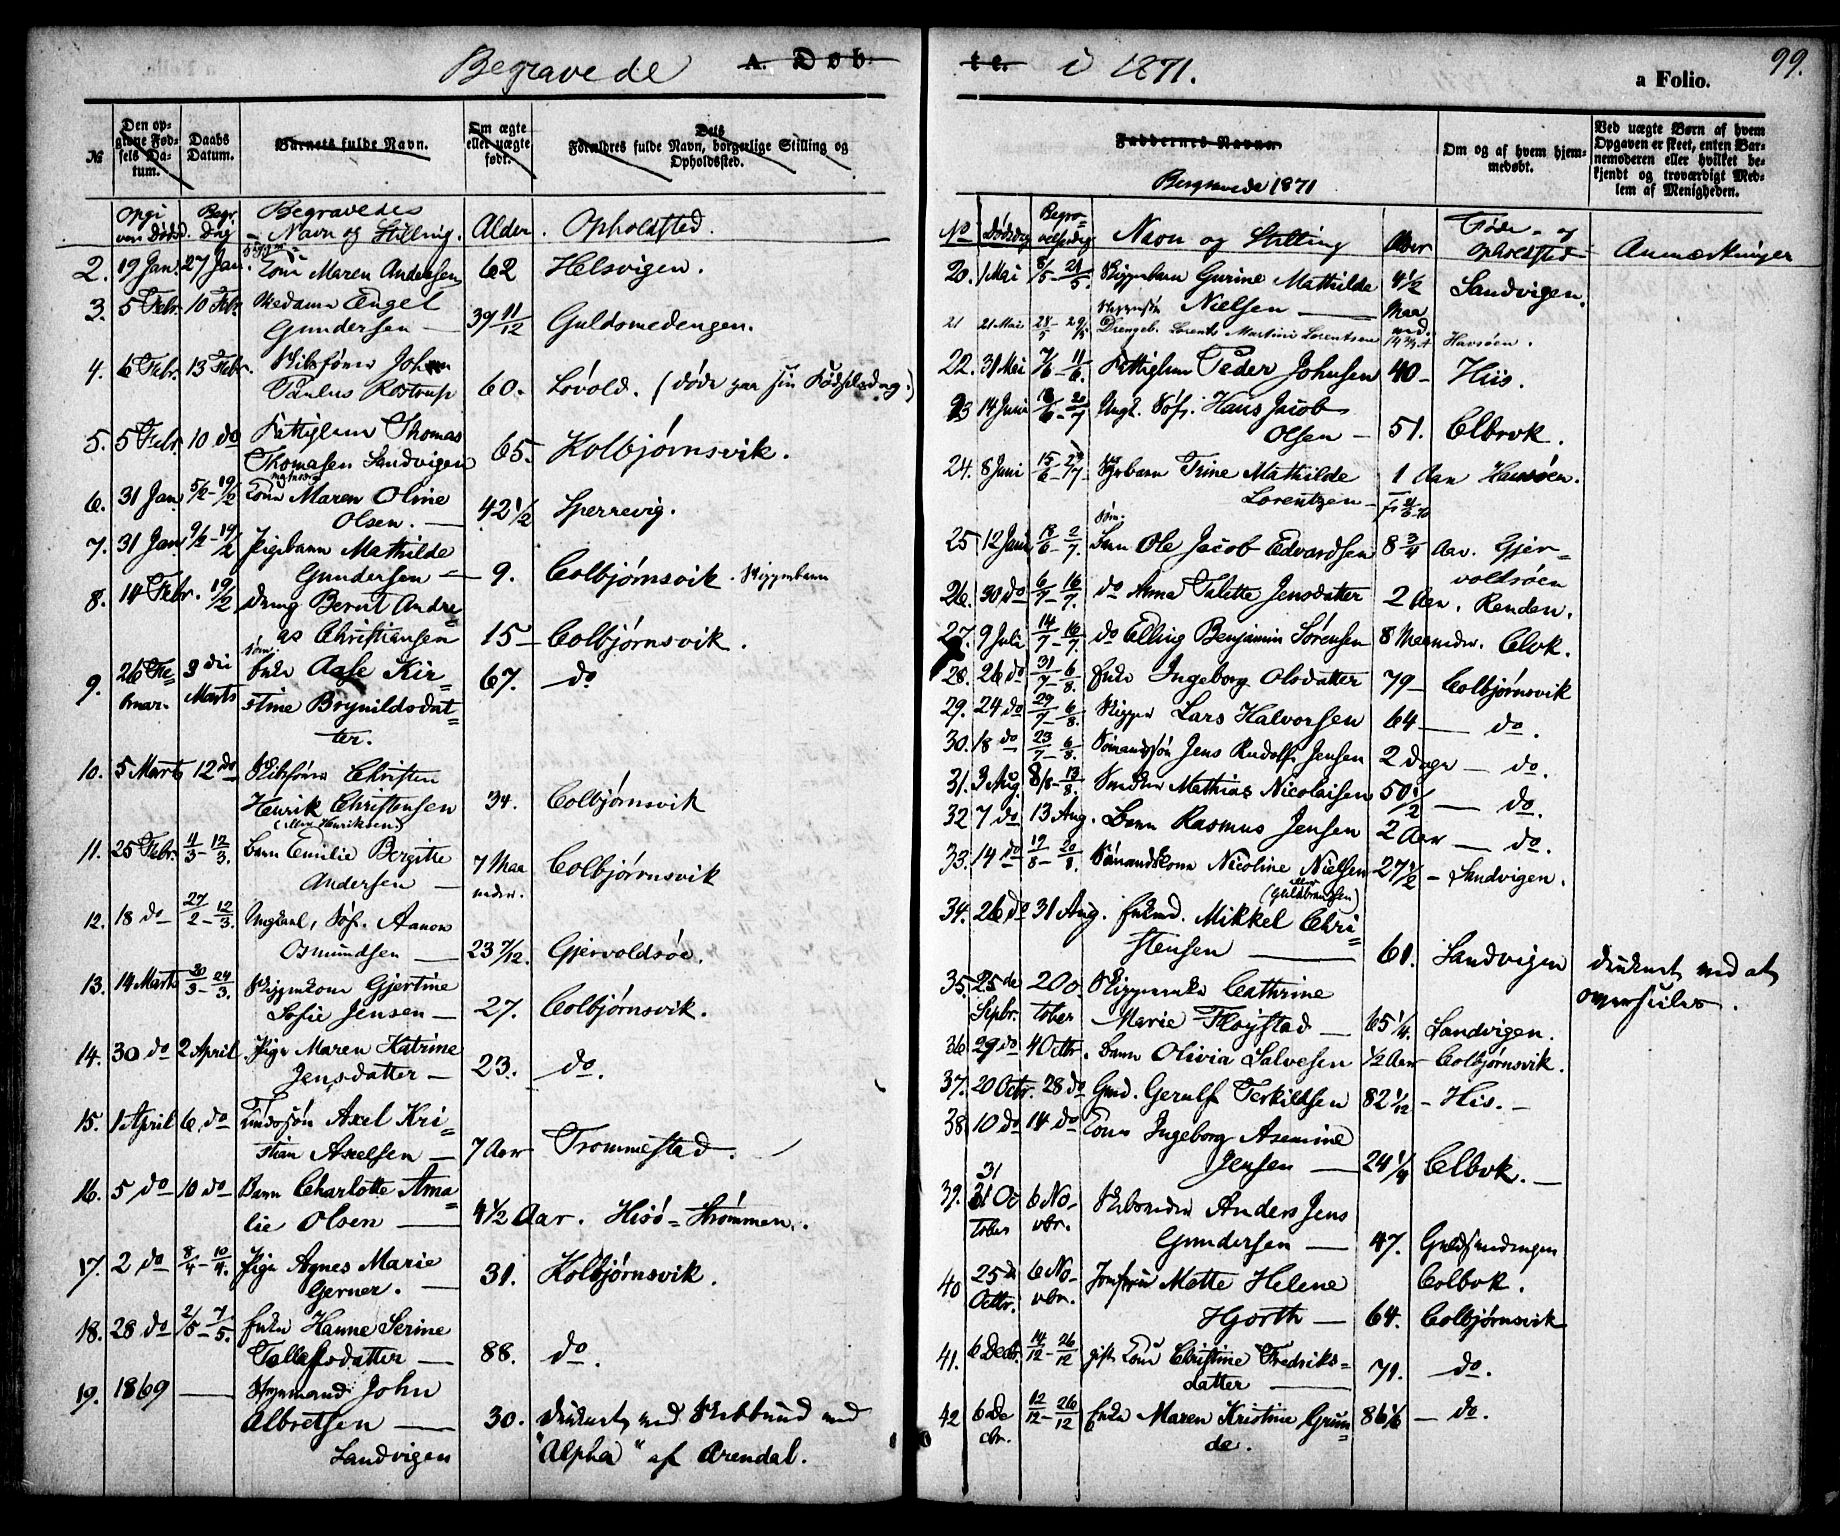 Begravede A. Døb-
№
Den op-
givne Fød-
sels Da-
tum.
Daabs
Datum.
Barnets fulde Navn.
Om ægte
eller uægte
født.
Dets
Forældres fulde Navn, borgerlige Stilling og
Opholdssted.
Opgi
ven Dødsd.
Begr.
Dag
Begravedes
Navn og Stilling.
Alder.
Opholdsted.
2. 19 Jan. 27 Jan. Kone Maren Andersen 62 Helsvigen.
3. 5 Febr. 10 Febr. Madame Engel
Gundersen — 39 11/12 Guldsmedengen.
4. 6 Febr. 13 Febr. Skibsfører John
Paulus Rostrup 60. Lövold. (døde paa sin Fødselsdag.)
5. 5 Febr. 10 do Fattiglem Thomas
Thomasen Sandvigen 65. Kolbjørnsvik.
6. 31 Jan. 5/2 - 19/2 Kone Maren Oline
Olsen. — 42 1/2 Sperrevig.
7. 31 Jan 9/2 - 19/2 Pigebarn Mathilde
Gundersen — 9. Colbjørnsvik. Skipperbarn
8. 14 Febr. 19/2 Dreng Bernt Andre=
as Christiansen 15 — Colbjørnsvik.
9. 26 Fe=
bruar. 3die
Marts Enke Aase Kir=
stine Brynildsdat=
ter. 67. do
10. 5 Marts 12 do Skibsfører Christen
Henrik Christensen
(eller Henriksen) 34. Colbjørnsvik
11. 25 Febr. 4/3 - 12/3. Barn Emilie Bergitte
Andersen — 7 Maa
neder. Colbjørnsvik
12. 18 do 27/2 - 12/3. Ungkarl, Søf. Aanon
Osmundsen — 23 7/12. Gjervoldsøe.
13. 14 Marts 20/3 - 24/3. Skipperkone Gjertine
Sofie Jensen — 27. Colbjørnsvik.
14. 30 do 2 April Pige Maren Katrine
Jensdatter — 23. do.
15. 1 April 6 do Axel Kri=
stian Axelsen — 7 Aar Trommestad.
16. 5 do 10 do Barn Charlotte Ama=
lie Olsen — 4 1/2 Aar. Hisö=Strømmen.
17. 2 do 8/4 - 10/4. Pige Agnes Marie
Gerner. — 31. Kolbjørnsvik.
18. 28 do 2/5 - 7/5. Enke Hanne Serine
Tallefsdatter — 88. do.
19. 1869 — Styrmand John
Albretsen —
Sandvigen 30. druknet ved Skibbrud med
"Alpha" af Arendal.
te. i 1871.
99.
a Folio.
Faddernes Navne.
Begravede 1871
Om og af hvem hjem-
medøbt.
Ved uægte Børn af hvem
Opgaven er skeet, enten Bar-
nemoderen eller hvilket be-
kjendt og troværdigt Med-
lem af Menigheden.
No Dødsdag Begra-
velsesdag Navn og Stilling Alder Føde- og
Opholdsted Anmærkninger
20. 1 Mai 8/5 - 21/5. Skipperbarn Gurine Mathilde
Nielsen — 4 1/2
Maa
ned. Sandvigen.
21 21 Mai 28/5 - 29/5 Drengeb. Lorents Martinius Lorentsen Havsøen.
22. 31 Mai 7/6 - 11/6. Fattiglem Peder Johnsen 40 — Hiis.
23 14 Juni Ungk. Søf. Hans Jacob
Olsen — 51. Clbvk.
24. 8 Juni Pigebarn Trine Mathilde
Lorentzen — 1 Aar Havsöen.
25 12 Juni 19/6 - 2/7. Barn Ole Jacob Edvardsen 8 3/4 Aar. Gjer=
voldsöen
26. 30 do 6/7 - 16/7. do Anna Talette Jensdatter 2 Aar. Renden.
27. 9 Juli 14/7 - 16/7. do Elling Benjamin Sörensen 8 Maaneder. Clvk.
28. 26 do 31/7 - 6/8. Enke Ingeborg Olsdatter 79 — Colbjørnsvik
29. 24 do 29/7 - 6/8. Skipper Lars Halvorsen 64 — do.
30. 18 do 23/7 - 6/8. Sømandssøn Jens Rudolf Jensen 2 Dage — do.
31. 3 Aug. 8/8 - 13/8. Snedker Mathias Nicolaisen 50 1/2 — do.
32 7 do 13 Aug. Barn Rasmus Jensen 2 Aar — do.
33. 14 do 19/8 - 20/8. Sømandskone Nicoline Nielsen
(eller Guldbrandsen) 27 1/2 — Sandvigen.
34. 26 do 31 Aug. Enkmd. Mikkel Chri=
stensen — 61. Sandvigen druknet ved at
overseiles.
35. 25 de
Sepbr. 2 Oc
tober Skipperenke Cathrine
Marie Fløystad — 65 1/4. Sandvigen.
36 29 do 4 Octbr. Barn Olivia Salvesen 1/2 Aar — Colbjørnsvik.
37. 20 Octr. 28 do Gmd. Gerulf Terkildsen 82 1/12 — His. —
38 10 do 14 do Kone Ingeborg Asemine
Jensen — 24 1/4 Clbvk. —
39. 31
31 Oc
tober 6 No-
vbr. Skibsreder Anders Jens
Gundersen — 47. Guldsmedengen
Colbvk.
40 25 de
Octbr. 6 No-
vbr. Jomfru Mette Helene
Hjorth — 64. Colbjørnsvik
41. 6 Decbr. 14/12 - 26/12 gift Kone Christine Fredriks=
datter — 71. do.
42 6 De
cbr. 12/12 - 26/12 Enke Maren Kristine Grun=
de. 86 1/6 — do.